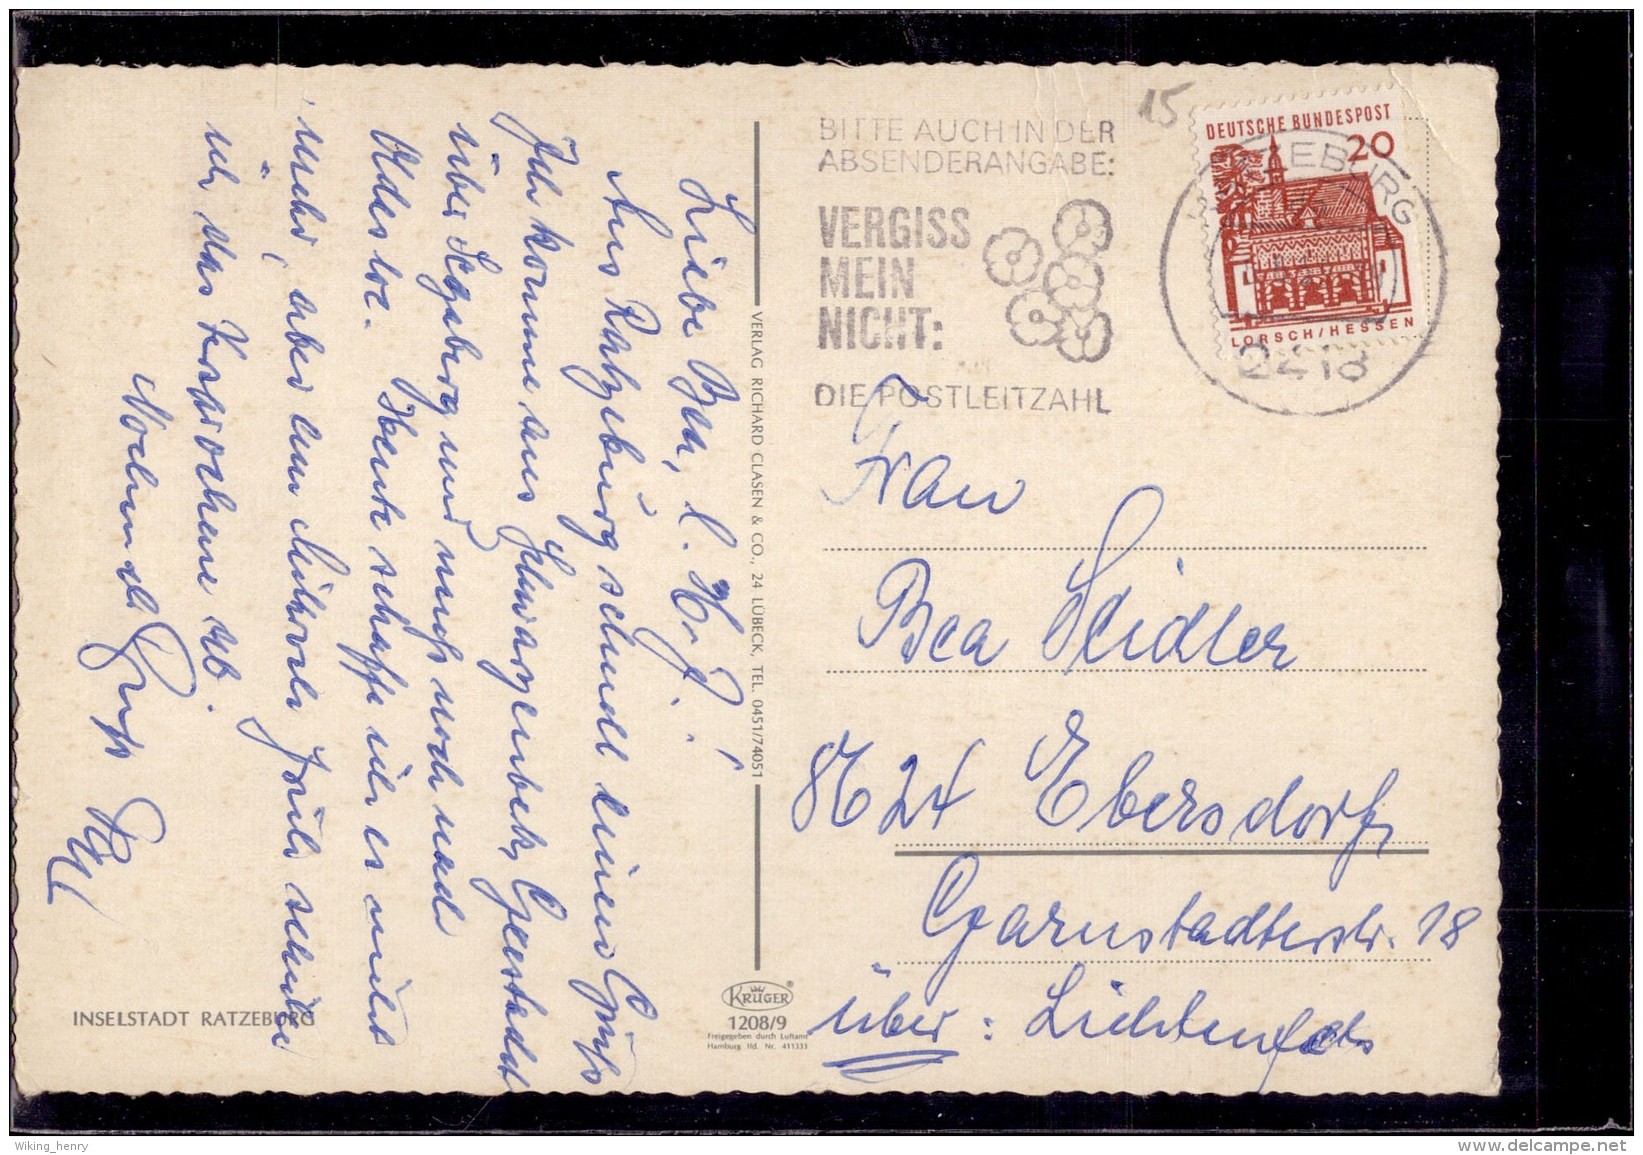 Liebe Bea, l. H. J.!
Aus Ratzeburg schnell einen Gruß
Ich komme aus Schwarzenbek, Geesthacht
über Segeberg und muß noch nach
Oldesloe. Heute schaffe ich es nicht
mehr, aber am Mittwoch
ich das Versprochene ab.
Nochmals Gruß
INSELSTADT RATZEBURG
VERLAG RICHARD CLASEN & CO., 24 LÜBECK, TEL. 0451/74051
KRÜGER
1208/9
Freigegeben durch Luftamt
Hamburg lfd. Nr. 411333
15
BITTE AUCH IN DER
ABSENDERANGABE:
VERGISS
MEIN
NICHT:
DIE POSTLEITZAHL
DEUTSCHE BUNDESPOST
20
LORSCH/HESSEN
RATZEBURG
2418
Frau
Bea Seidler
8624 Ebersdorf
Garnstadterstr. 18
über: Lichtenfels
Wiking_henry
www.delcampe.net